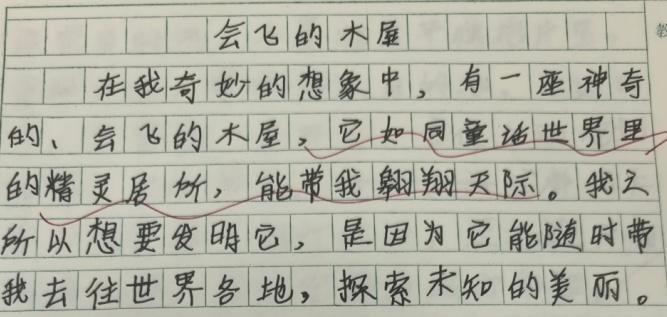 会飞的木屋
在我奇妙的想象中，有一座神奇
的、会飞的木屋，它如同童话世界里
的精灵居所，能带我翱翔天际。我之
所以想要发明它，是因为它能随时带
我去往世界各地，探索未知的美丽。